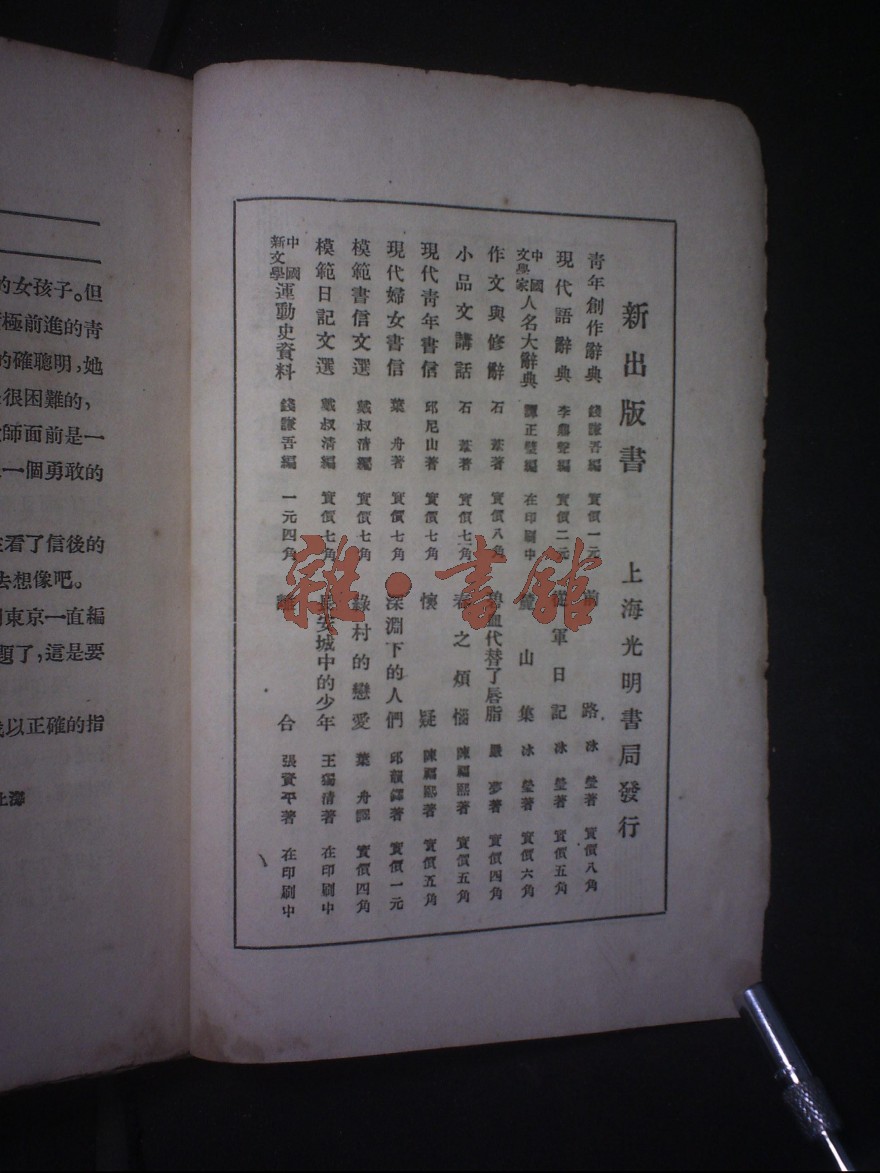 新出版書　上海光明書局發行
青年創作辭典　錢謙吾編　實價一元　路　冰瑩著　實價八角
現代語辭典　李鼎聲編　實價二元　從軍日記　冰瑩著　實價五角
中國文學家人名大辭典　譚正璧編　在印刷中　麓山集　冰瑩著　實價六角
作文與修辭　石葦著　實價八角　血代替了唇脂　嚴夢著　實價四角
小品文講話　石葦著　實價七角　春之煩惱　陳福熙著　實價五角
現代青年書信　邱尼山著　實價七角　懷疑　陳福熙著　實價五角
現代婦女書信　葉舟著　實價七角　深淵下的人們　邱韻鐸著　實價一元
模範書信文選　戴叔清編　實價七角　綠村的戀愛　葉舟譯　實價四角
模範日記文選　戴叔清編　實價七角　長安城中的少年　王獨清著　在印刷中
中國新文學運動史資料　錢謙吾編　一元四角　台　張資平著　在印刷中
雜·書館
的女孩子。但
極前進的青
的確聰明，她
很困難的，
師面前是一
一個勇敢的
看了信後的
去想像吧。
東京一直編
題了，這是要
以正確的指